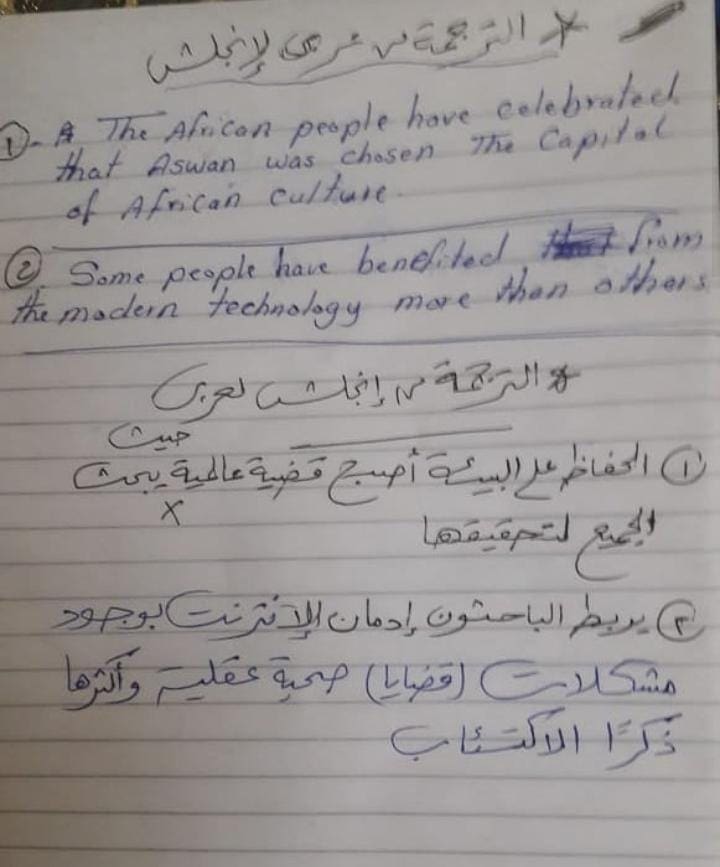 * الترجمة من عربى لإنجلش
1- A. The African people have celebrated
that Aswan was chosen The Capital
of African culture.
2. Some people have benefited from
the modern technology more than others
* الترجمة من إنجلش لعربى
حيث
١ الحفاظ على البيئة أصبح قضية عالمية يبحث
x
الجميع لتحقيقها
٢ يربط الباحثون إدمان الإنترنت بوجود
مشكلات (قضايا) صحية عقلية وأكثرها
ذكرًا الاكتئاب